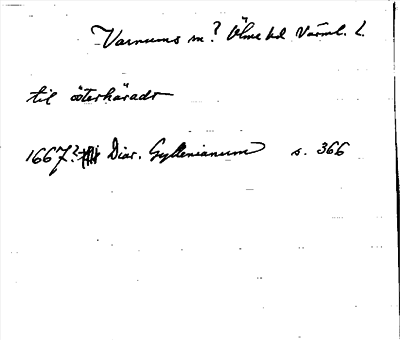 Varnums sn? Ölme hd Värml. L.
til österhäradt
1667? Diar. Gyllenianum s. 366